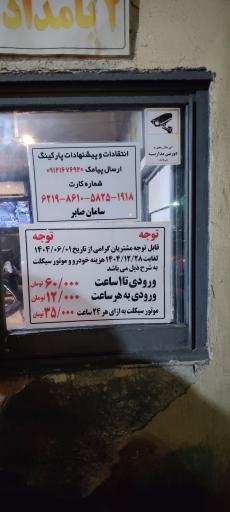 ۲ بامداد
این مکان مجهز به
دوربین مداربسته
انتقادات و پیشنهادات پارکینگ
ارسال پیامک ۰۹۱۲۱۶۷۶۹۲۰
شماره کارت
۶۲۱۹-۸۶۱۰-۵۸۲۵-۱۹۱۸
سامان صابر
توجه توجه
قابل توجه مشتریان گرامی از تاریخ ۱۴۰۴/۰۶/۰۱
لغایت ۱۴۰۴/۱۲/۲۸ هزینه خودرو و موتور سیکلت
به شرح ذیل می باشد
ورودی تا ۱ ساعت ۶۰/۰۰۰ تومان
ورودی به هر ساعت ۱۲/۰۰۰ تومان
موتور سیکلت به ازای هر ۲۴ ساعت ۳۵/۰۰۰ تومان